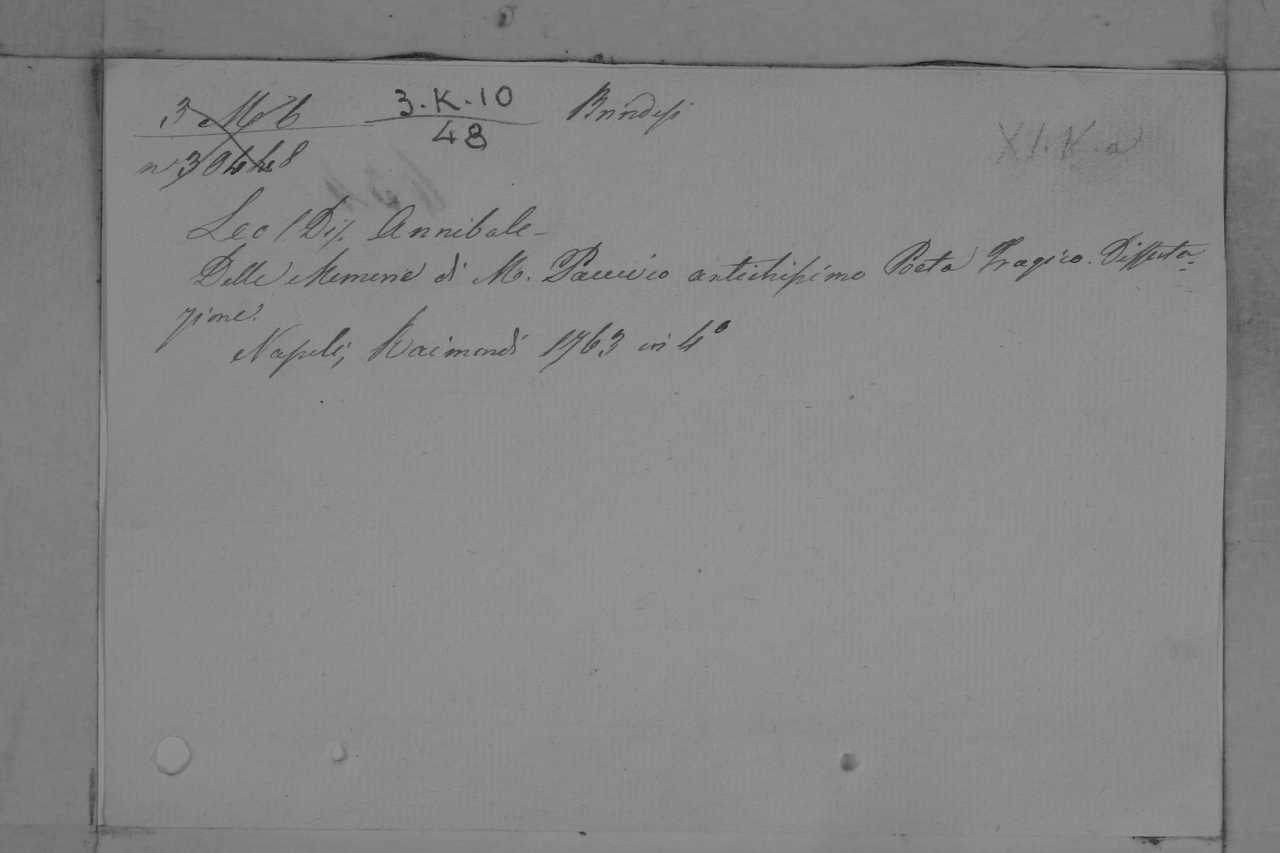 3.K.10 Brindisi
48
XI.K.a
Leo (Di). Annibale-
Delle Memorie di M. Pacuvio antichissimo Poeta Tragico. Disserta-
zione.
Napoli, Raimondi 1763 in 4°